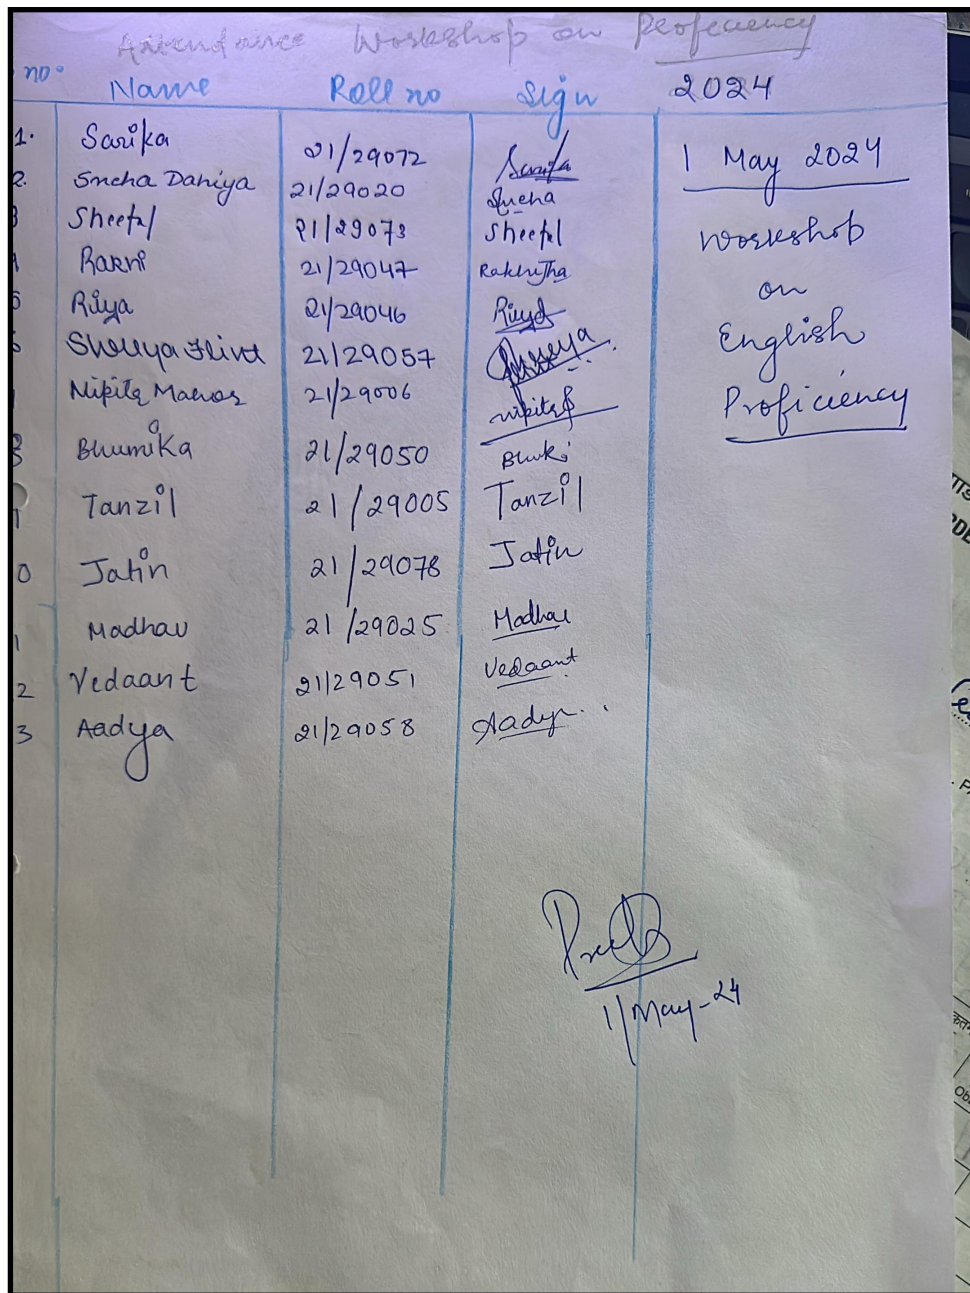 Attendance Workshop on Proficiency
no. Name Roll no Sign 2024
1. Sarika 21/29072 Sarika
2. Sneha Dahiya 21/29020 Sneha
3 Sheetal 21/29073 Sheetal
21/29047
5 Riya 21/29046 Riya
21/29057 Shreya
Nikita 21/29006 Nikita
8 Bhumika 21/29050 Bhuki
Tanzil 21/29005 Tanzil
0 Jatin 21/29078 Jatin
1 Madhav 21/29025 Madhav
2 Vedaant 21/29051 Vedaant
3 Aadya 21/29058 Aadya
1 May 2024
Workshop
on
English
Proficiency
1/May-24